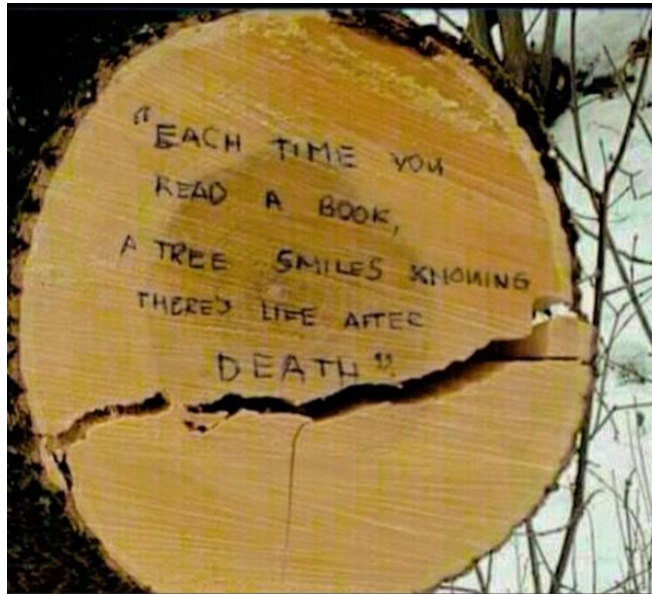 "EACH TIME YOU
READ A BOOK,
A TREE SMILES KNOWING
THERE'S LIFE AFTER
DEATH"